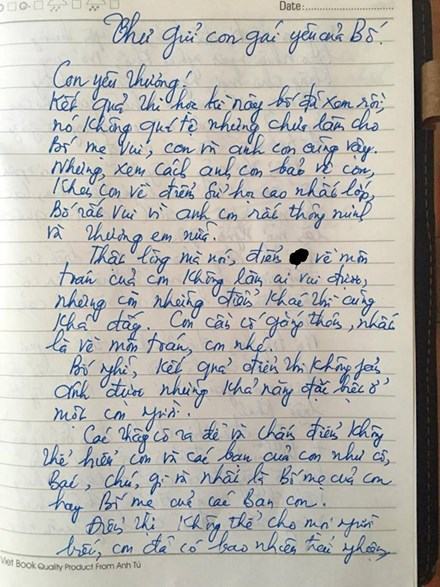 Date:
Thư gửi con gái yêu của Bố.
Con yêu thương!
Kết quả thi học kì này bố đã xem rồi,
nó không quá tệ nhưng chưa làm cho
Bố mẹ vui, con và anh con cũng vậy.
Nhưng, xem cách anh con bảo vệ con,
khen con về điểm sử học cao nhất lớp,
Bố rất vui vì anh con rất thông minh
và thương em nữa.
Thật lòng mà nói, điểm về môn
toán của con không làm ai vui được,
nhưng còn những điểm khác thì cũng
khá đấy. Con cần cố gắng thêm, nhất
là về môn toán, con nhé.
Bố nghĩ, kết quả điểm thi không phản
ánh được những khả năng đặc biệt ở
một con người.
Các thầy cô ra đề và chấm điểm không
thể hiểu con và các bạn của con như cô,
Bác, chú, gì và nhất là Bố mẹ của con
hay Bố mẹ của các Bạn con.
Điểm thi không thể cho mọi người
biết, con đã có bao nhiêu trải nghiệm,
Viet Book Quality Product From Anh Tú